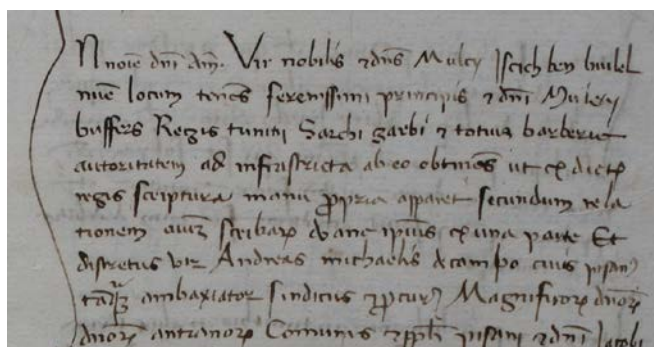 N noie dni am. Vir nobilis & dns Muley Iscich ben builel
nue locum tenes serenissimi principis & dni Muleri
buffers Regis tuniti Sarchi garbi & totius barberie
autoritatem ad infrastricta ab eo obtines ut ex dict
regis scriptura manu propria apparet secundum rela
tionem scribar ex una parte Et
discretus vir Andreas michaelis de campo civis pisan
ambaxiator sindicus & Magnificor dnor
dnor antianor Comunis & pisani & dni Iacobi